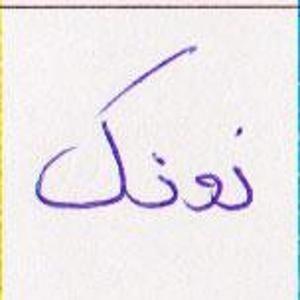 نونک